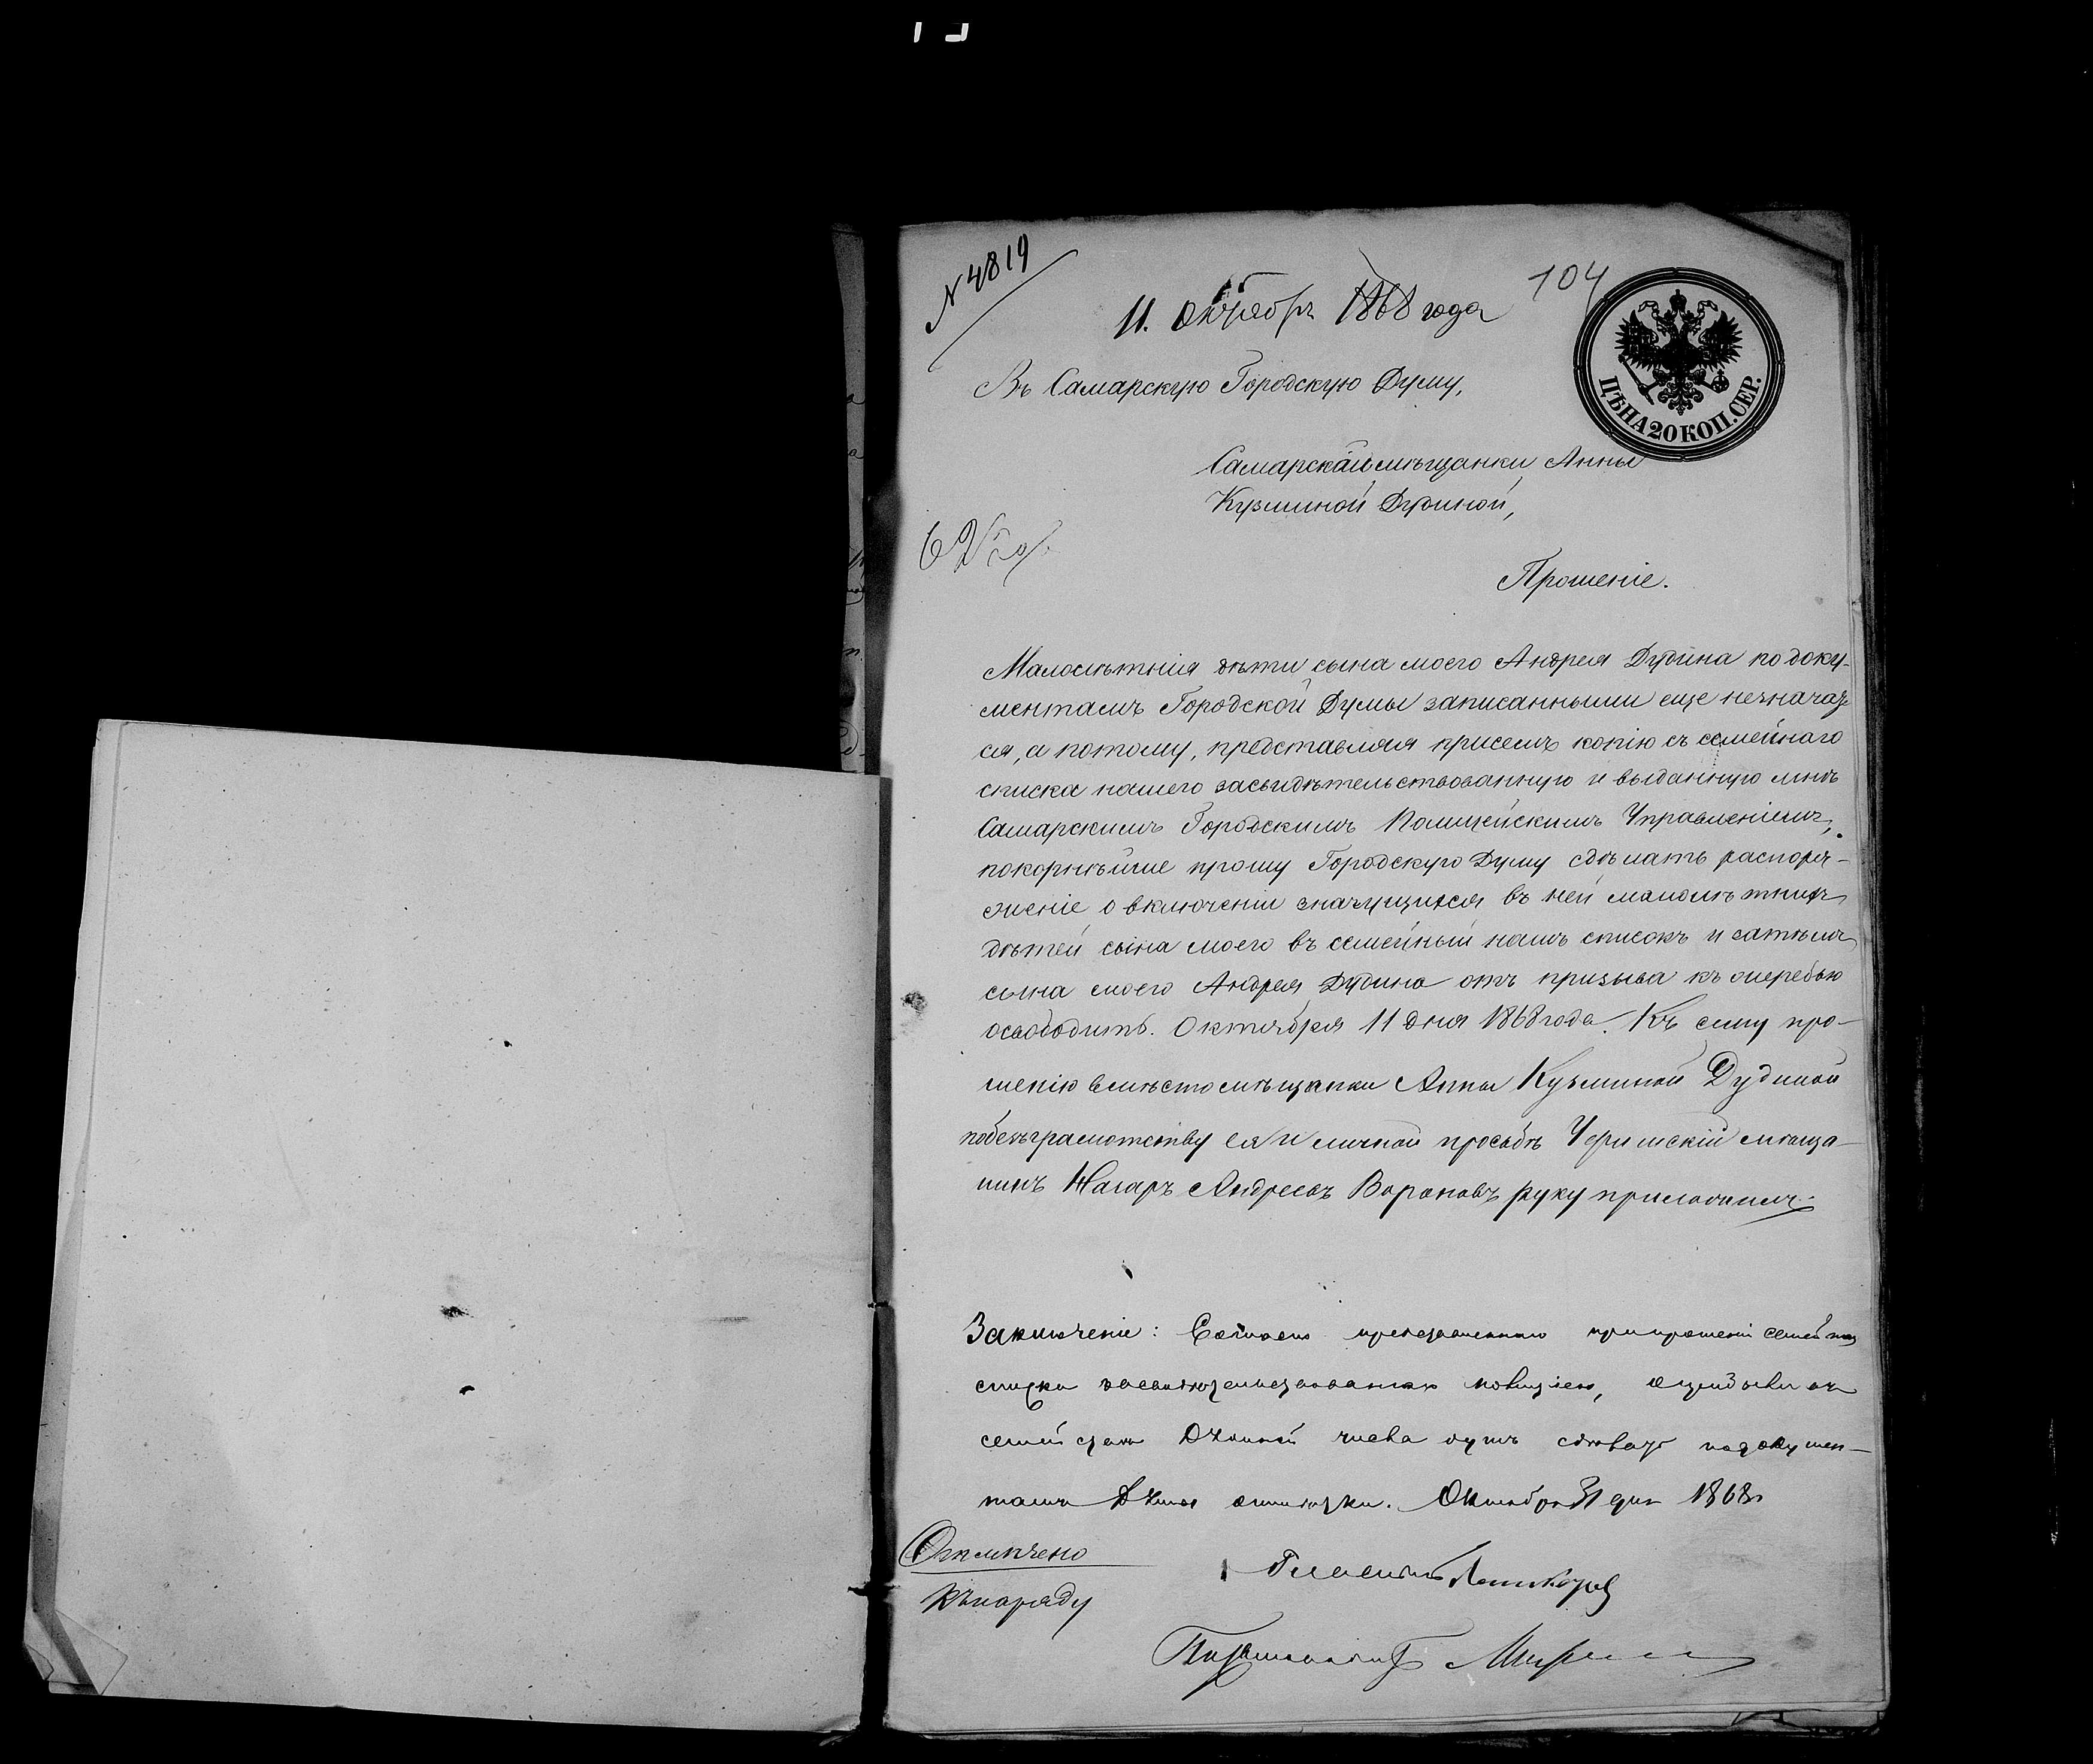 N 4819
11. Октября 1868 года
104
ЦѢНА 20 КОП. СЕР.
Въ Самарскую Городскую Думу,
Самарской мѣщанки Анны
Кузминой Дудиной,
Прошеніе.
Малолѣтнія дѣти сына моего Андрея Дудина по доку-
ментамъ Городской Думы записанными еще незначат
ся, а потому, представляя присемъ копію съ семейнаго
списка нашего засвидѣтельствованную и выданную мнѣ
Самарскимъ Городскимъ Полицейскимъ Управленіемъ,
покорнѣйше прошу Городскую Думу сдѣлать распоря-
женіе о включеніи значущихся въ ней малолѣтнихъ
дѣтей сына моего въ семейный нашъ списокъ и затѣмъ
сына моего Андрея Дудина отъ призыва къ очередью
освободить. Октября 11 дня 1868 года. Къ сему про-
шенію вмѣсто мѣщанки Анны Кузминой Дудиной
побезграмотству ея и личной просьбѣ мѣща-
нинъ Андреевъ Вороновъ руку приложилъ
Заключеніе: Согласно при прошеніи семейнаго
списка полиціею,
семейства Дудиной числа душъ сдѣлать по докумен-
тамъ Думы отмѣтки. Октября 31 дня 1868
Отмѣчено
Къ наряду
Гласный